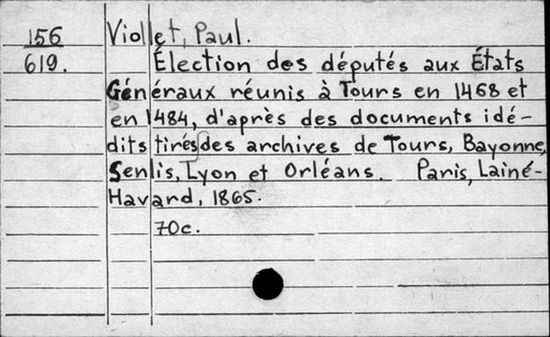 156 Viollet, Paul.
619. Élection des députés aux États
Généraux réunis à Tours en 1468 et
en 1484, d'après des documents idé-
dits tirés des archives de Tours, Bayonne,
Senlis, Lyon et Orléans. Paris, Lainé-
Havard, 1865.
70c.